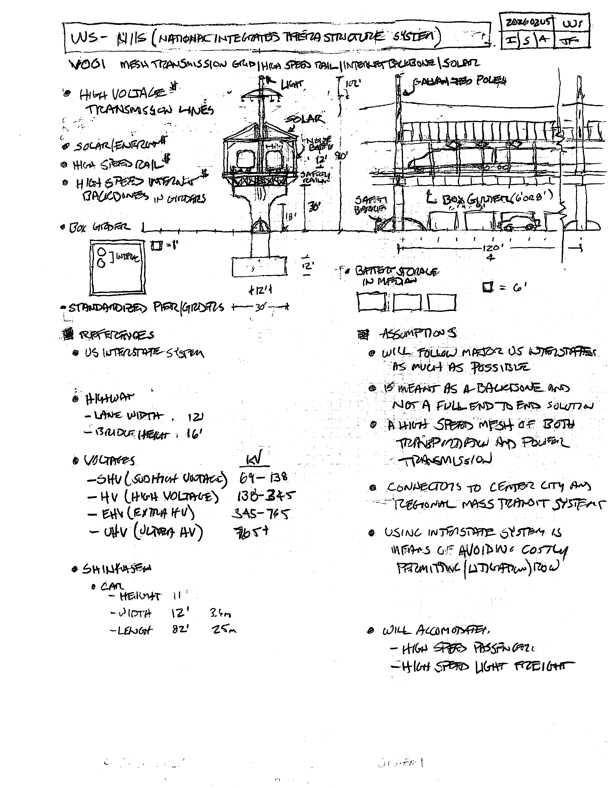 US-NIIS (NATIONAL INTEGRATED INFRASTRUCTURE SYSTEM)
20260205
I S A JF
V001 MESH TRANSMISSION GRID/HIGH SPEED RAIL/INTERNET BACKBONE/SOLAR
• HIGH VOLTAGE $
TRANSMISSION LINES
LIGHT
102'
GALVANIZED POLES
SOLAR
• SOLAR/ENERGY $
• HIGH SPEED RAIL $
• HIGH SPEED INTERNET $
BACKBONES IN GIRDERS
12'
SAFETY
RAIL
30'
18'
SAFETY
BARRIER
BOX GIRDER (6' OR 8')
• BOX GIRDER
= 1'
12'
120'
4
• BATTERY STORAGE
IN MEDIAN
= 6'
12'
30'
• STANDARDIZED PIER/GIRDERS
REFERENCES
• US INTERSTATE SYSTEM
• HIGHWAY
- LANE WIDTH . 12'
- BRIDGE HEIGHT . 16'
• VOLTAGES KV
- SHV (SUB HIGH VOLTAGE) 69-138
- HV (HIGH VOLTAGE) 138-345
- EHV (EXTRA HV) 345-765
- UHV (ULTRA HV) 765+
• SHINKASEN
• CAR
- HEIGHT 11'
- WIDTH 12' 3.6m
- LENGH 82' 25m
ASSUMPTIONS
• WILL FOLLOW MAJOR US INTERSTATES
AS MUCH AS POSSIBLE
• IS MEANT AS A BACKBONE AND
NOT A FULL END TO END SOLUTION
• A HIGH SPEED MESH OF BOTH
TRANSPORTATION AND POWER
TRANSMISSION
• CONNECTORS TO CENTER CITY AND
REGIONAL MASS TRANSIT SYSTEMS
• USING INTERSTATE SYSTEM IS
MEANS OF AVOIDING COSTLY
PERMITTING/LITIGATION/ROW
• WILL ACCOMODATE:
- HIGH SPEED PASSENGER
- HIGH SPEED LIGHT FREIGHT